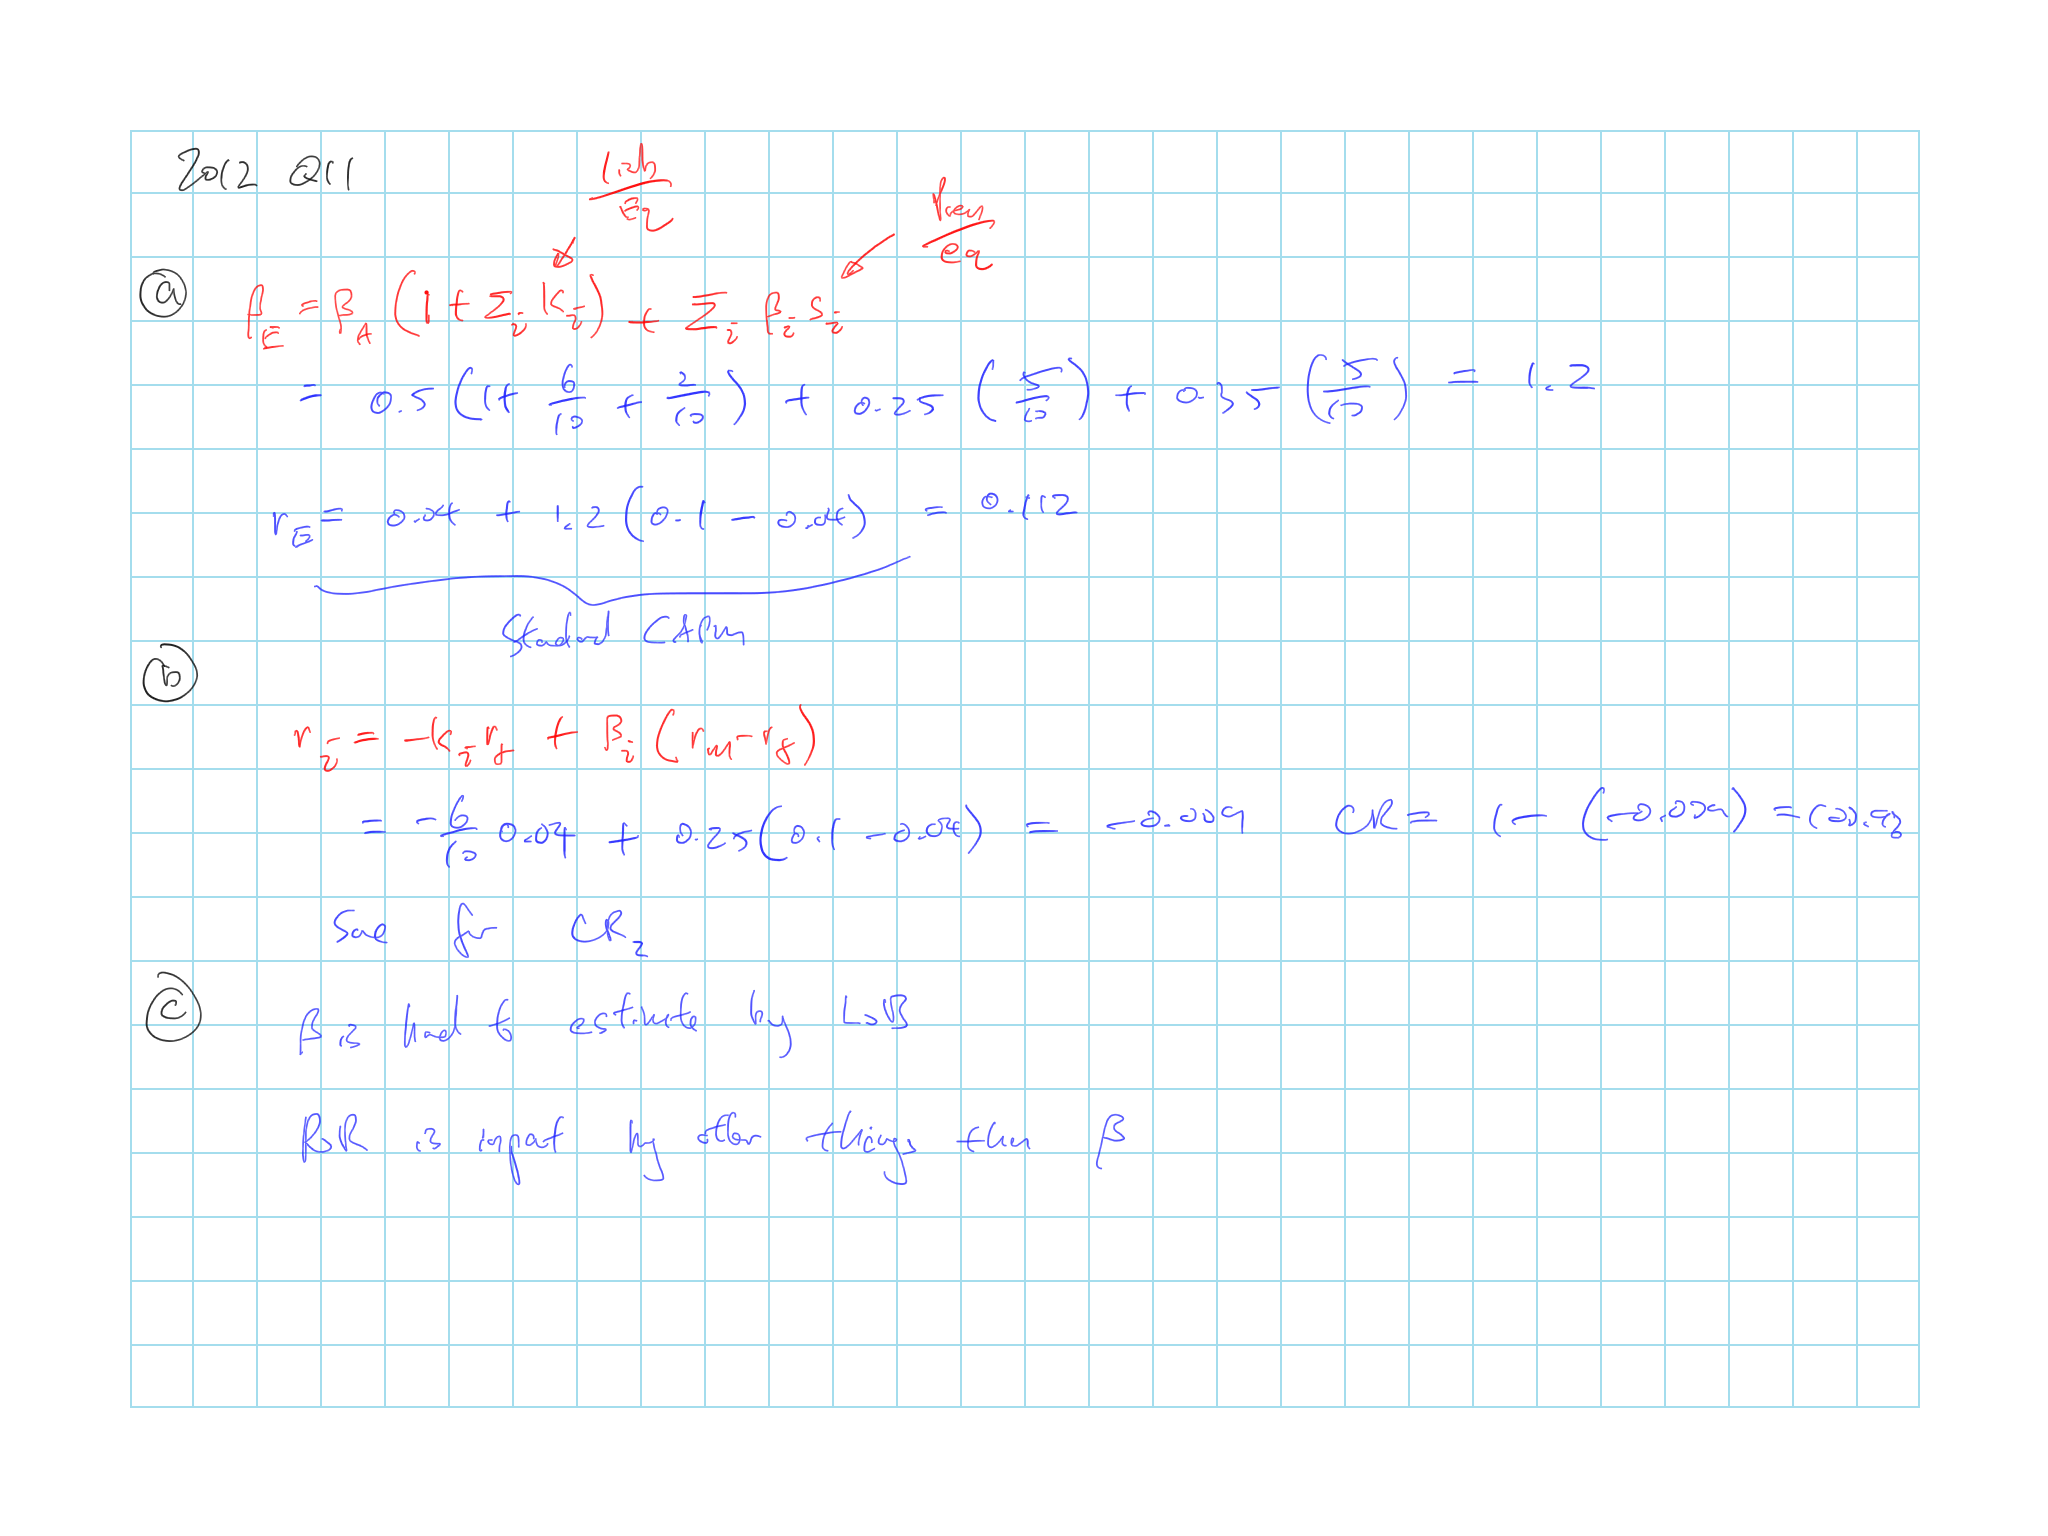 2012 Q11
Liab
Eq
Prem
eq
ⓐ β_E = β_A (1 + Σ_i k_i) + Σ_i β_i s_i
= 0.5 (1 + 6/10 + 2/10) + 0.25 (5/10) + 0.35 (5/10) = 1.2
r_E = 0.04 + 1.2 (0.1 - 0.04) = 0.112
Standard CAPM
ⓑ
r_i = -k_i r_f + β_i (r_m - r_f)
= -6/10 0.04 + 0.25 (0.1 - 0.04) = -0.009 CR = 1 - (-0.009) =
Same for CR_2
ⓒ
β is hard to estimate by LoB
RoR is impact by other things than β